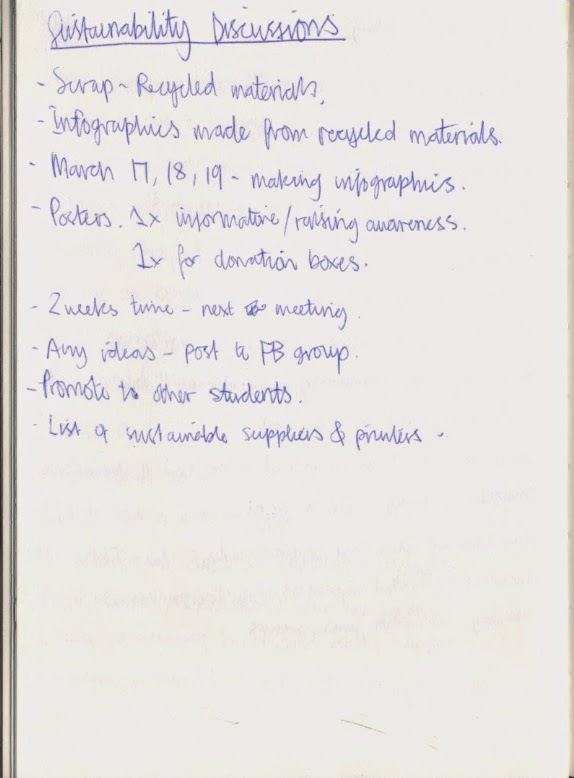 Sustainability Discussions
- Scrap - Recycled materials.
- Infographics made from recycled materials.
- March 17, 18, 19 - making infographics.
- Posters. 1x informative/raising awareness.
1x for donation boxes.
- 2 weeks time - next meeting.
- Any ideas - post to FB group.
- Promote to other students.
- List of sustainable suppliers & printers.